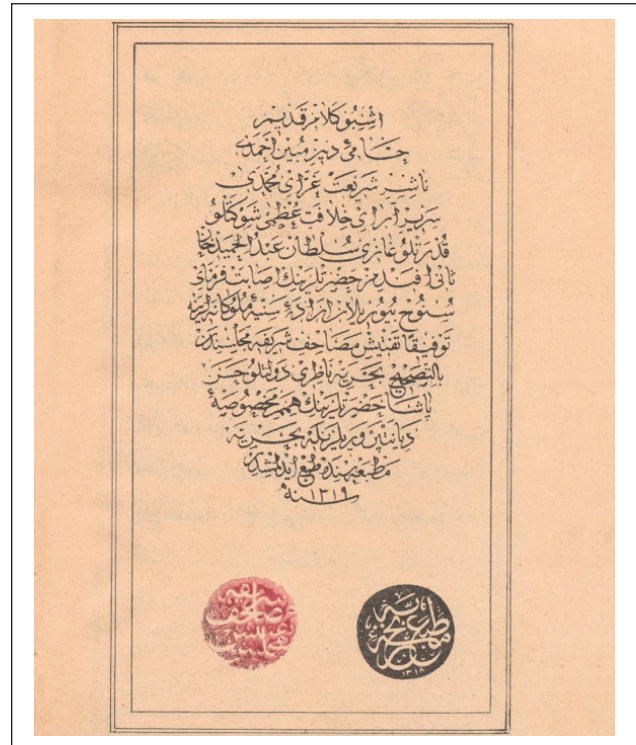 اشبو كلام قديم
حامئ دين مبين احمدی
ناشر شريعت غرای محمدی
سرير آرای خلافت عظمی شوكتلو
قدرتلو غازی سلطان عبد الحميد خان
ثانی افندمز حضرتلرينك اصابت فرمای
سنوح بيوريلان اراده سنيۀ ملوكانه لرينه
توفيقا تفتيش مصاحف شريفه مجلسندن
بالتصحيح بحريه ناظری دولتلو حسن
پاشا حضرتلرينك همم مخصوصۀ
ديانتپروريلريله بحريه
مطبعه سنده طبع ايدلمشدر
سنه ١٣١٩
مطبعۀ بحريه
١٣١٨